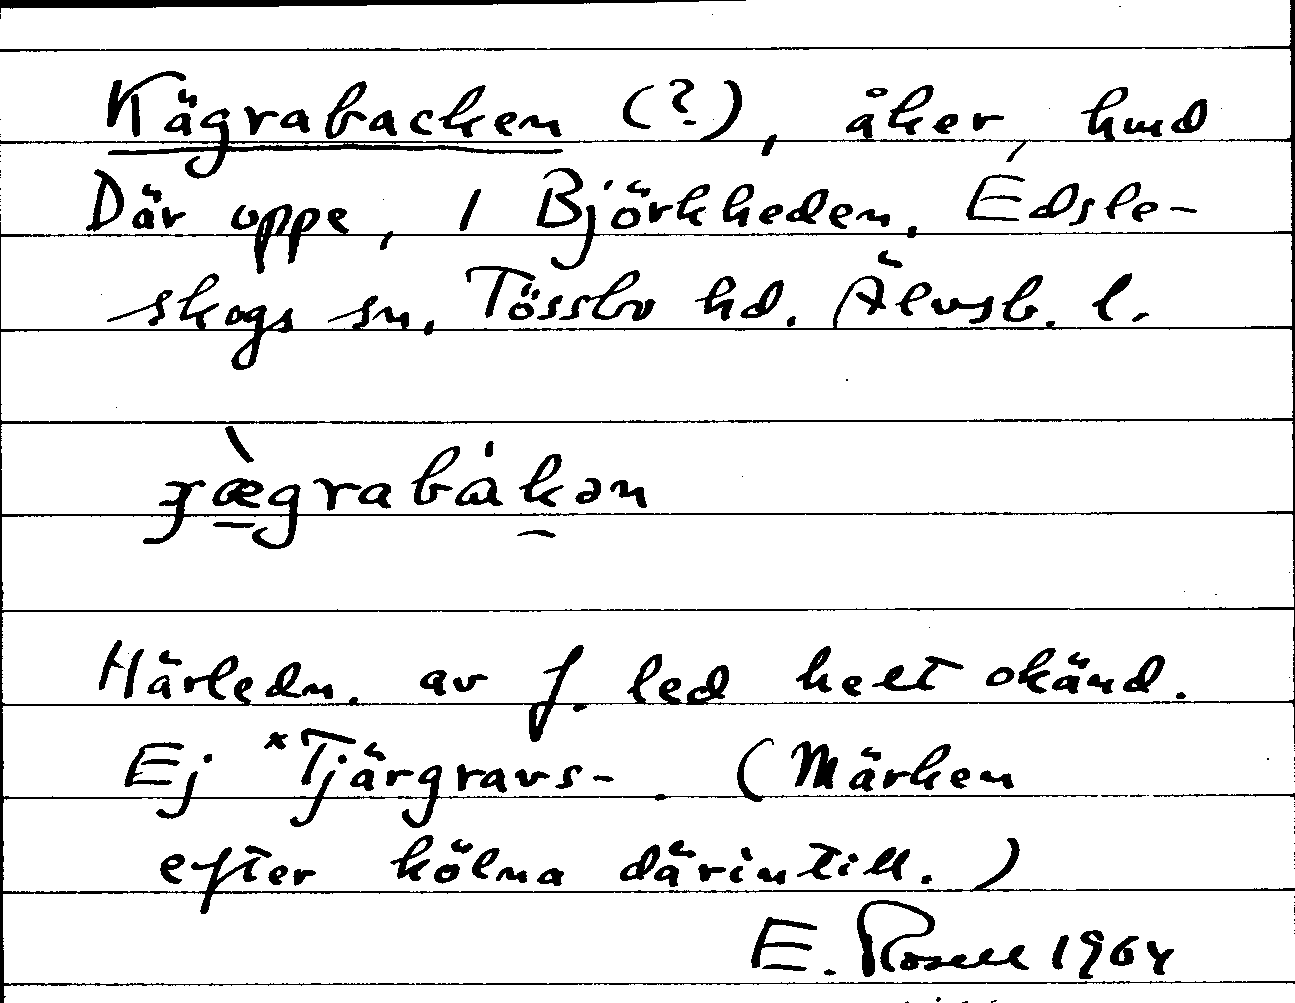 Kägrabacken (?), åker, hmd
Där oppe, 1 Björkheden, Edsle-
skogs sn, Tössbo hd. Älvsb. l.
ɟæ̀grabákən
Härledn. av f. led helt okänd.
Ej *Tjärgravs-. (Märken
efter kölna därintill.)
E. Rosell 1964